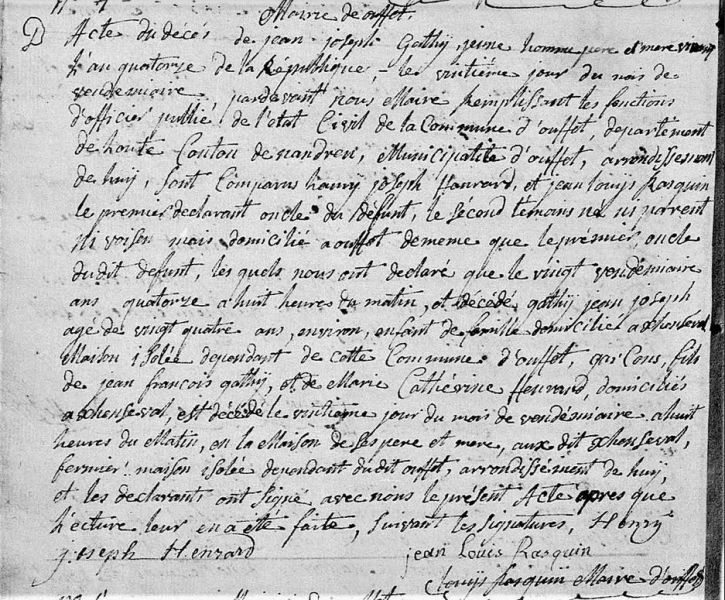 Mairie de ouffet.
D Acte du décès de jean joseph Gathij, jeune homme, pere et mere vivans
L'an quatorze de la République, le vintième jour du mois de
vendemiaire pardevant nous Maire Remplissant les fonctions
d'officier public de l'état Civil de la Commune d'ouffet, departement
de Canton de nandren, Municipalité d'ouffet, arrondissement
de huij, sont Comparus henrij joseph et jean louijs Rasquin
le premier declarant oncle du défunt, le second temoins ne ni parent
ni voison mais domicilié a ouffet demême que le prémier, oncle
dudit defunt, les quels nous ont déclaré que le vingt vendémiaire
ans quatorze a huit heures du matin, et décédé gathij jean joseph
agé de vingt quatre ans, environ, enfant de famille domicilié a xhenseval
Maison isolée dependant de cette Commune d'ouffet, garcons, fils
de jean francois gathij, et de Marie Cathérine domiciliés
a xhenseval, est décédé le vintieme jour du mois de vendémiaire a huit
heures du Matin, en la Maison de ses pere et mere, aux dit xhenseval,
fermier, maison isolée dependant dudit ouffet, arrondissement de huij,
et les declarants ont signé avec nous le présent Acte apres que
lecture leur en a été faite, suivant les signatures, Henry
joseph Henrard jean Louis Rasquin
louijs Rasquin Maire d'ouffet